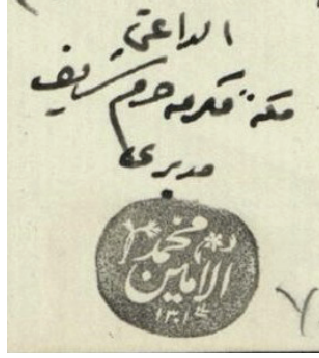 الداعي
مكة مكرمه حرم شريف
مديرى
محمد
الامين